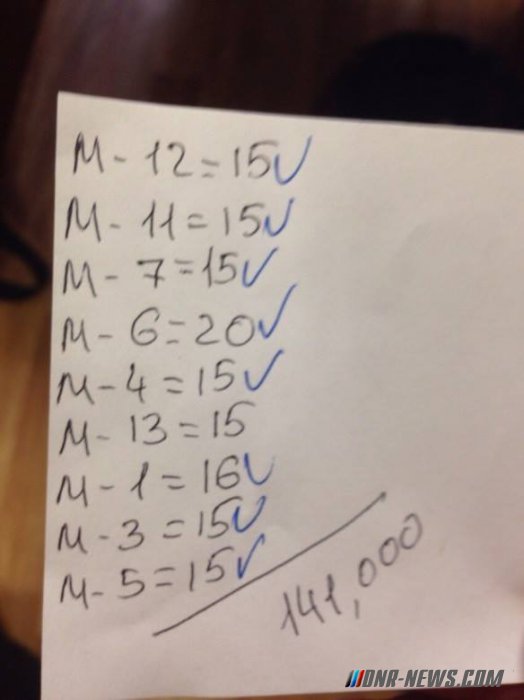 M - 12 = 15 ✓
M - 11 = 15 ✓
M - 7 = 15 ✓
M - 6 = 20 ✓
M - 4 = 15 ✓
M - 13 = 15
M - 1 = 16 ✓
M - 3 = 15 ✓
M - 5 = 15 ✓
141,000
DNR-NEWS.COM